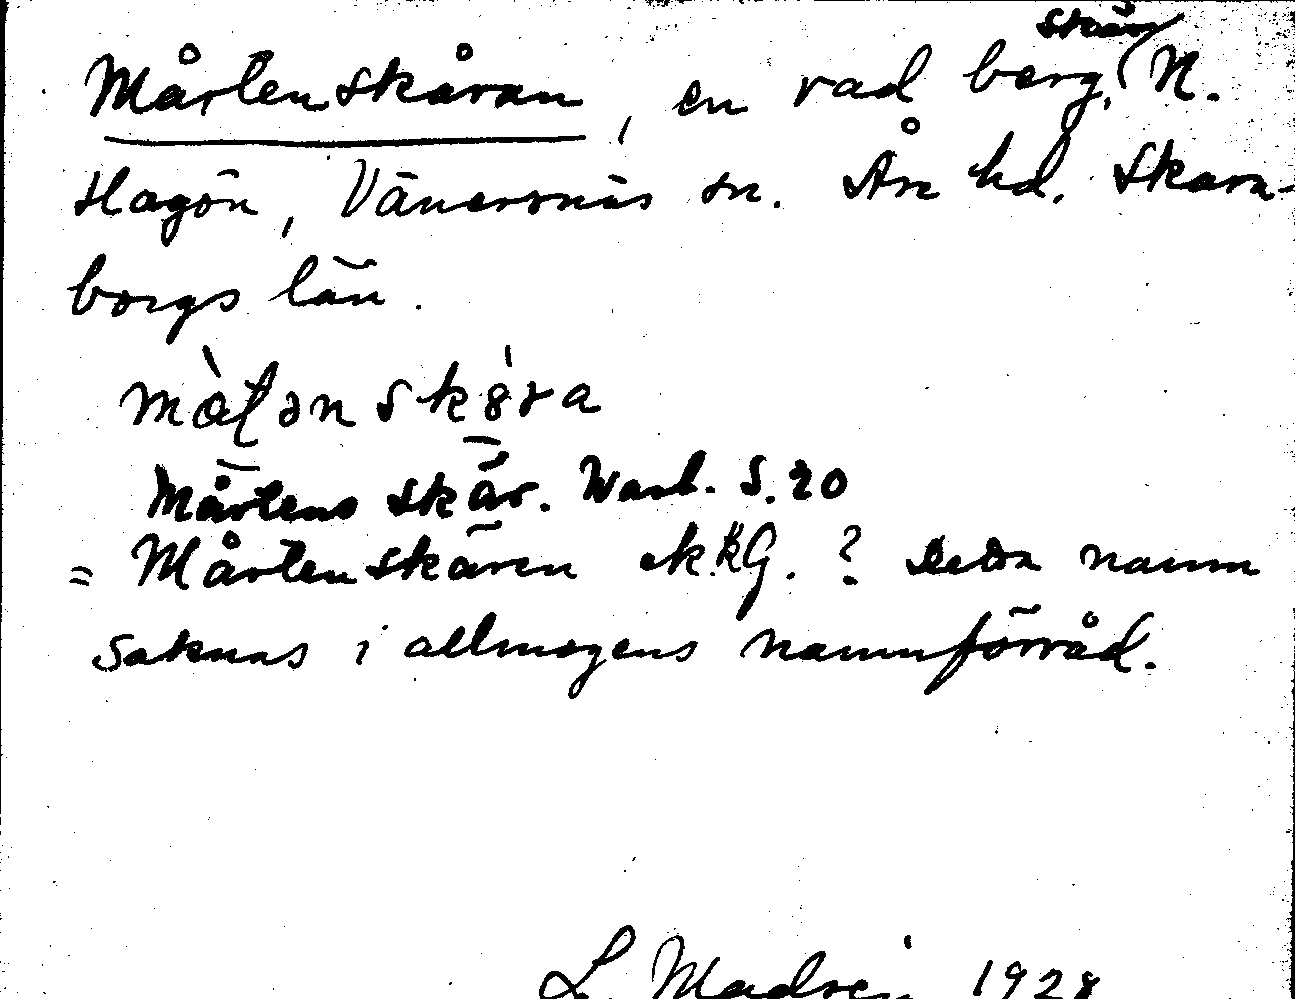 skär
Mårtenskåran, en rad berg, N.
Hagön, Vänersnäs sn. Åse hd. Skara-
borgs län.
mòʈən skȯ́ra
Mårtens skär. Warb. S. 20
= Mårtenskären ek.kG. ? Detta namn
saknas i allmogens namnförråd.
L 1928